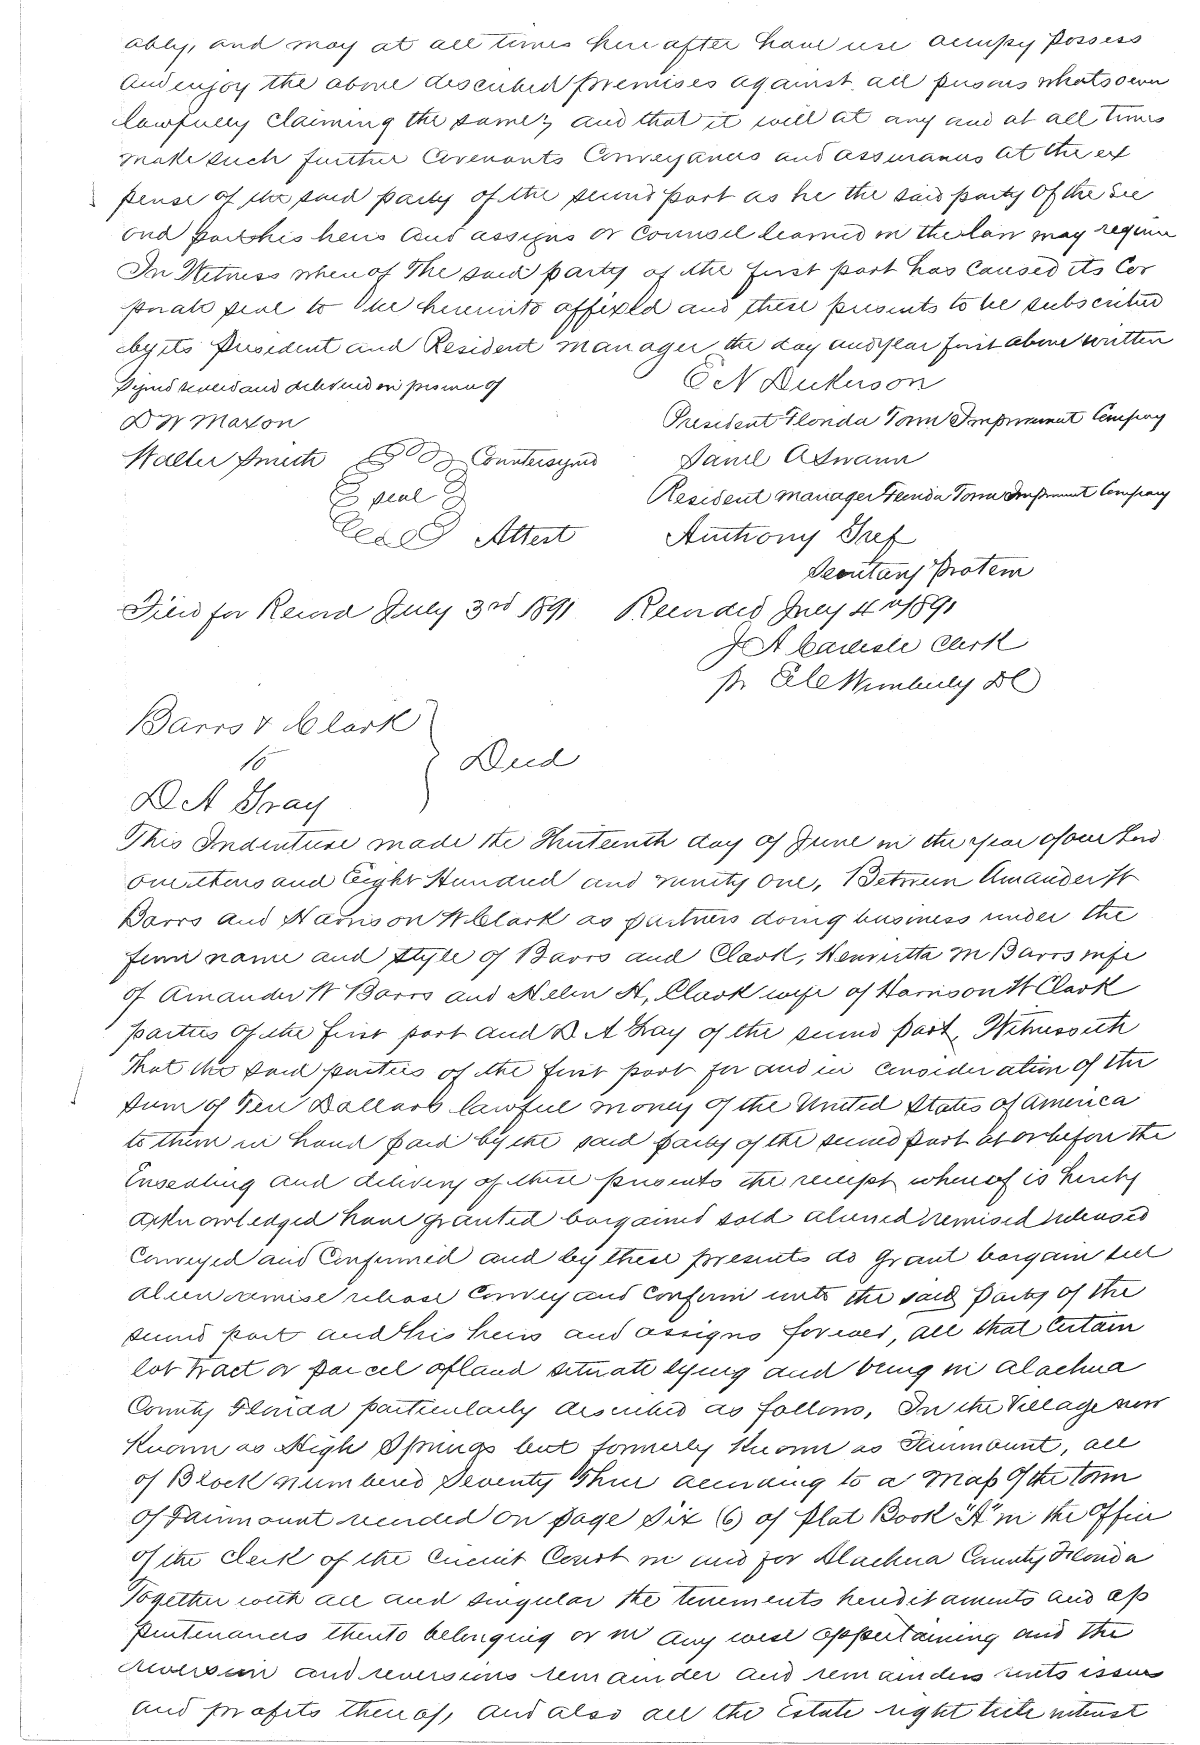 ably, and may at all times here after have use occupy possess
and enjoy the above described premises against all persons whatsoever
lawfully claiming the same, and that it will at any and at all times
make such further Covenants Conveyances and assurances at the ex
pense of the said party of the second part as he the said party of the sec
ond part his heirs and assigns or counsel learned in the law may require
In Witness whereof The said party of the first part has caused its Cor
porate seal to be hereunto affixed and these presents to be subscribed
by its President and Resident manager the day and year first above written
Signed sealed and delivered in presence of E N Dickerson
D W Maxon President Florida Town Improvement Company
Walter Smith Countersigned Daniel
seal Resident manager Florida Town Improvement Company
Attest Anthony Gref
Secretary Protem
Filed for Record July 3rd 1891 Recorded July 4th 1891
J A Carlisle Clerk
pr Wimberly DC
Barrs & Clark
to Deed
D A Gray
This Indenture made the Thirteenth day of June in the year of our Lord
one thousand Eight Hundred and ninety one, Between Amander W
Barrs and Harrison W Clark as partners doing business under the
firm name and style of Barrs and Clark, Henrietta M Barrs wife
of Amander W Barrs and Helen H, Clark wife of Harrison W Clark
parties of the first part and D A Gray of the second part, Witnesseth
That the said parties of the first part for and in consideration of the
sum of Ten Dollars lawful money of the United States of America
to them in hand paid by the said party of the second part at or before the
Ensealing and delivery of these presents the receipt whereof is hereby
acknowledged have granted bargained sold aliened remised released
Conveyed and Confirmed and by these presents do grant bargain sell
alien remise release Convey and Confirm unto the said Party of the
second part and his heirs and assigns forever, all that Certain
lot tract or parcel of land situate lying and being in Alachua
County Florida particularly described as follows, In the Village now
Known as High Springs but formerly Known as Fairmount, all
of Block numbered Seventy Three according to a Map of the town
of Fairmount recorded on page Six (6) of Plat Book "A" in the Office
of the Clerk of the Circuit Court in and for Alachua County Florida
Together with all and singular the tenements hereditaments and ap
purtenances thereto belonging or in any wise appertaining and the
reversion and reversions remainder and remainders rents issues
and profits thereof, and also all the Estate right title interest